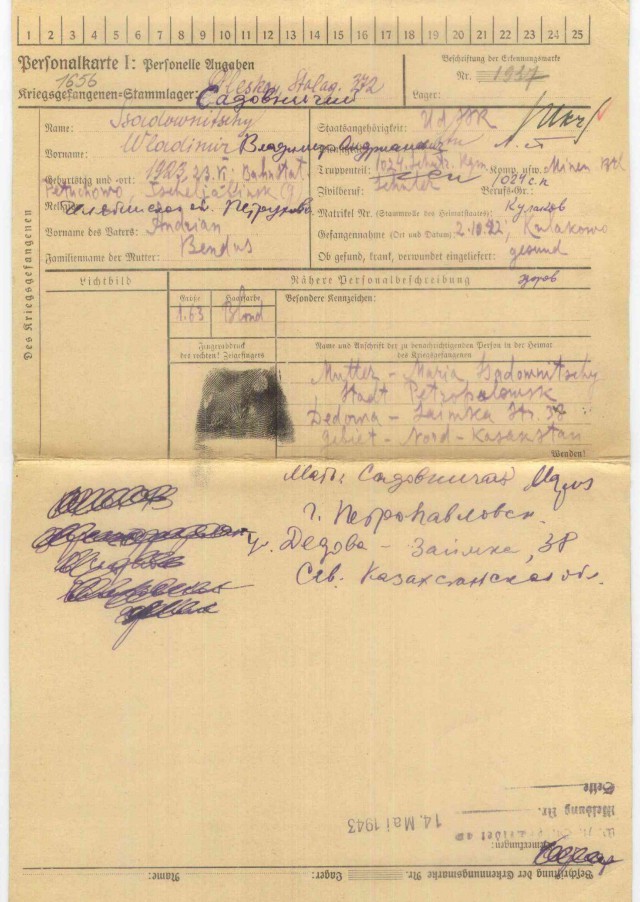 1 2 3 4 5 6 7 8 9 10 11 12 13 14 15 16 17 18 19 20 21 22 23 24 25
Personalkarte I: Personelle Angaben
Beschriftung der Erkennungsmarke
1656
Nr. 1937
Kriegsgefangenen-Stammlager: Stalag. 372
Lager:
Садовничий
Des Kriegsgefangenen
Name: Ssadownitschy
Staatsangehörigkeit: UdSSR
Vorname: Wladimir Владимир Андрианович
Truppenteil: 1024 Schütz. Rgm. Komp. usw.: Minen Btl
Geburtstag und -ort: 1923, 23. VI. Bahnstat.
Petuchowo
Zivilberuf: Schüler Berufs-Gr.:
1024 с.п
Religion:
Matrikel Nr. (Stammrolle des Heimatstaates):
Кулаков
Vorname des Vaters: Andrian
Gefangennahme (Ort und Datum): 2.10.42, Kulakowo
Familienname der Mutter: Bendus
Ob gesund, krank, verwundet eingeliefert: gesund
Lichtbild
Nähere Personalbeschreibung
здоров
Größe
Haarfarbe
Besondere Kennzeichen:
1.63
Blond
Fingerabdruck
des rechten! Zeigefingers
Name und Anschrift der zu benachrichtigenden Person in der Heimat
des Kriegsgefangenen
Mutter - Maria Ssadownitschy
Stadt Petropalowsk
Dedowa - Saimka Str. 37
Gebiet - Nord - Kasakstan
Wenden!
Мать Садовничая
г. Петропавловск.
ул. Дедова - Займка, 38
Сев. Казахстанская обл.
Seite
Meldung Nr.
14. Mai 1943
Bemerkungen:
Beschriftung der Erkennungsmarke Nr. Lager: Name: